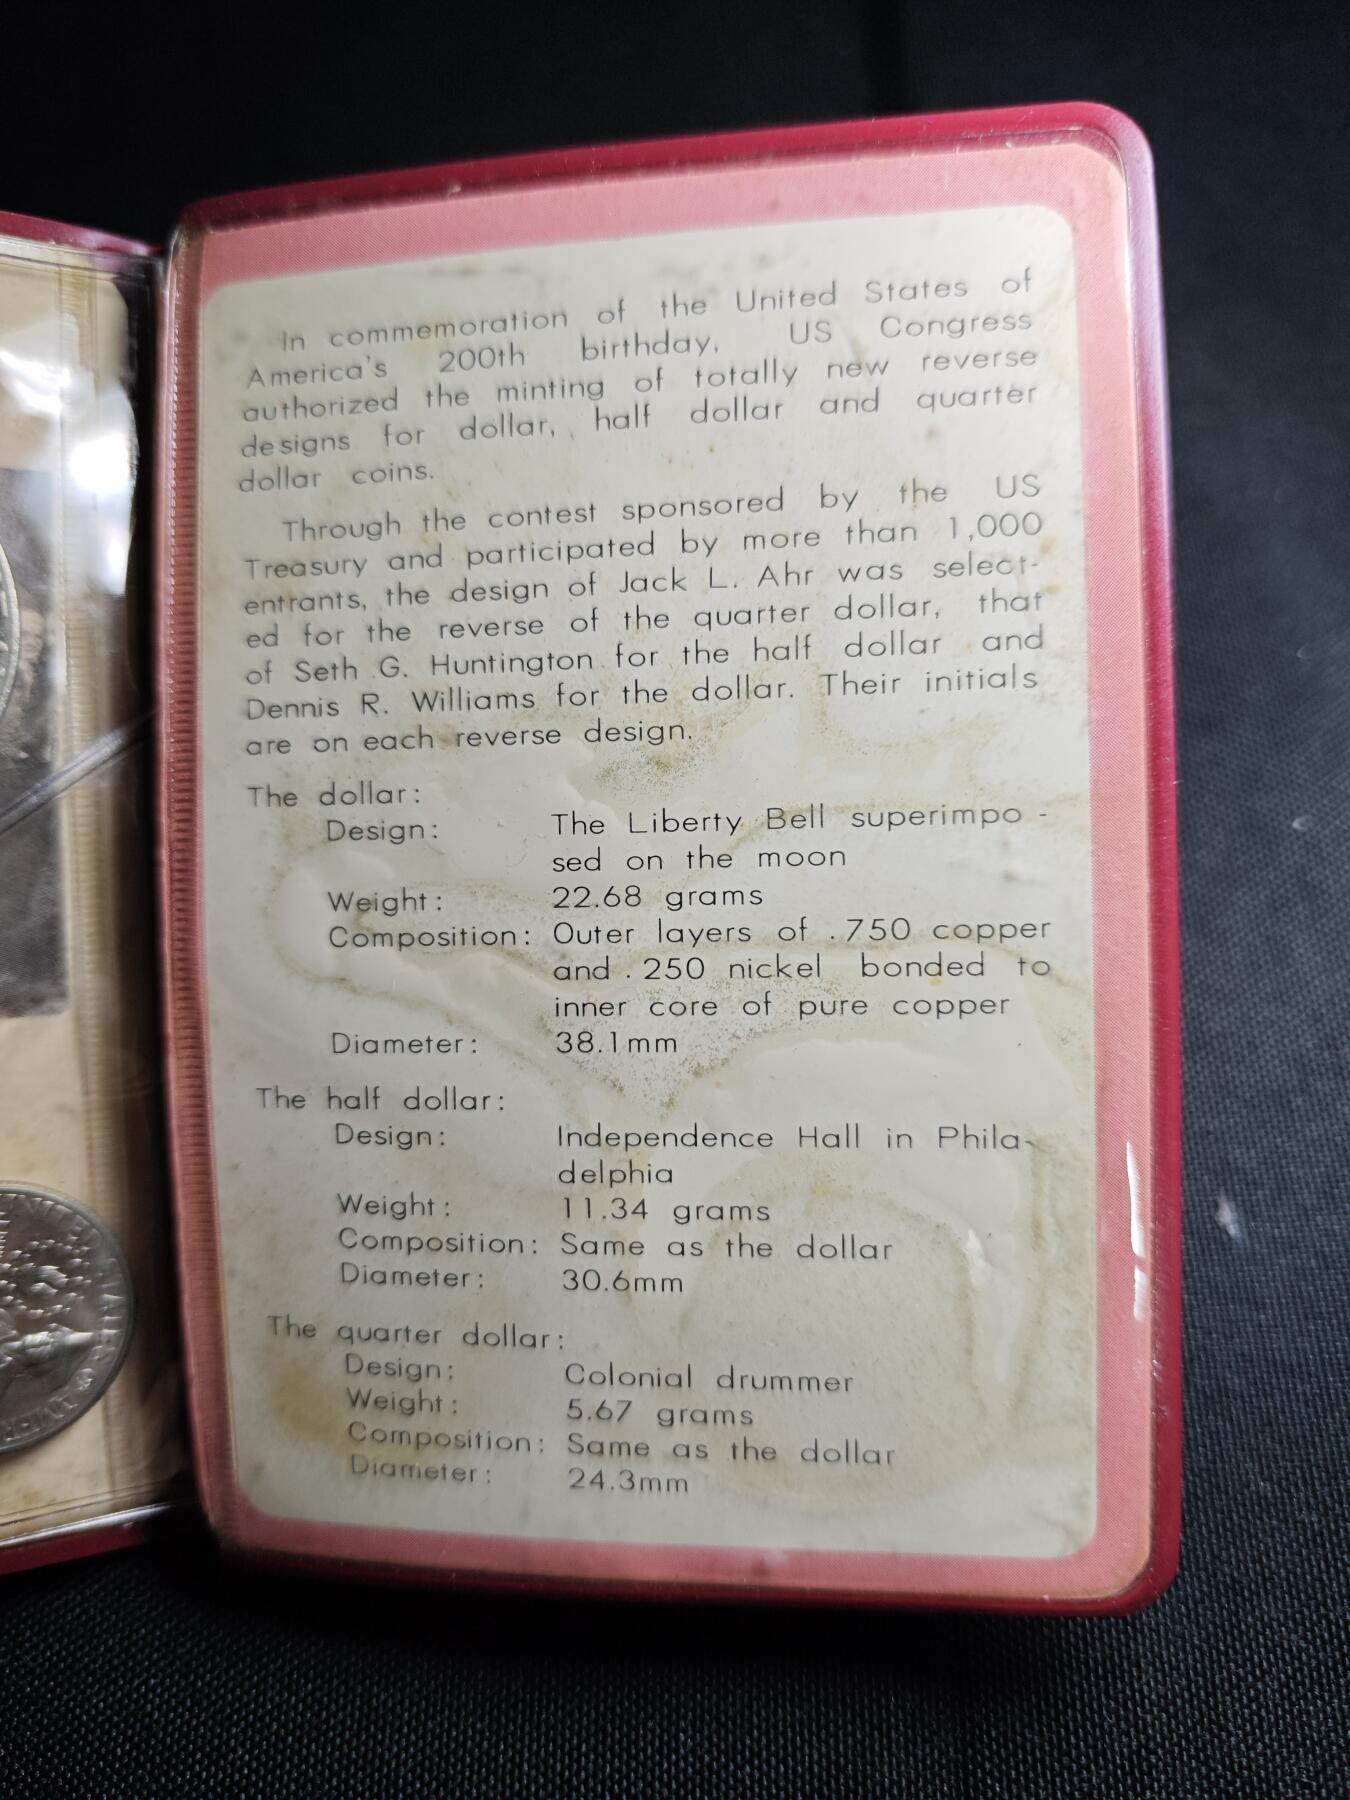 In commemoration of the United States of
America's 200th birthday, US Congress
authorized the minting of totally new reverse
designs for dollar, half dollar and quarter
dollar coins.
Through the contest sponsored by the US
Treasury and participated by more than 1,000
entrants, the design of Jack L. Ahr was select-
ed for the reverse of the quarter dollar, that
of Seth G. Huntington for the half dollar and
Dennis R. Williams for the dollar. Their initials
are on each reverse design.
The dollar:
Design: The Liberty Bell superimpo-
sed on the moon
Weight: 22.68 grams
Composition: Outer layers of .750 copper
and .250 nickel bonded to
inner core of pure copper
Diameter: 38.1mm
The half dollar:
Design: Independence Hall in Phila-
delphia
Weight: 11.34 grams
Composition: Same as the dollar
Diameter: 30.6mm
The quarter dollar:
Design: Colonial drummer
Weight: 5.67 grams
Composition: Same as the dollar
Diameter: 24.3mm